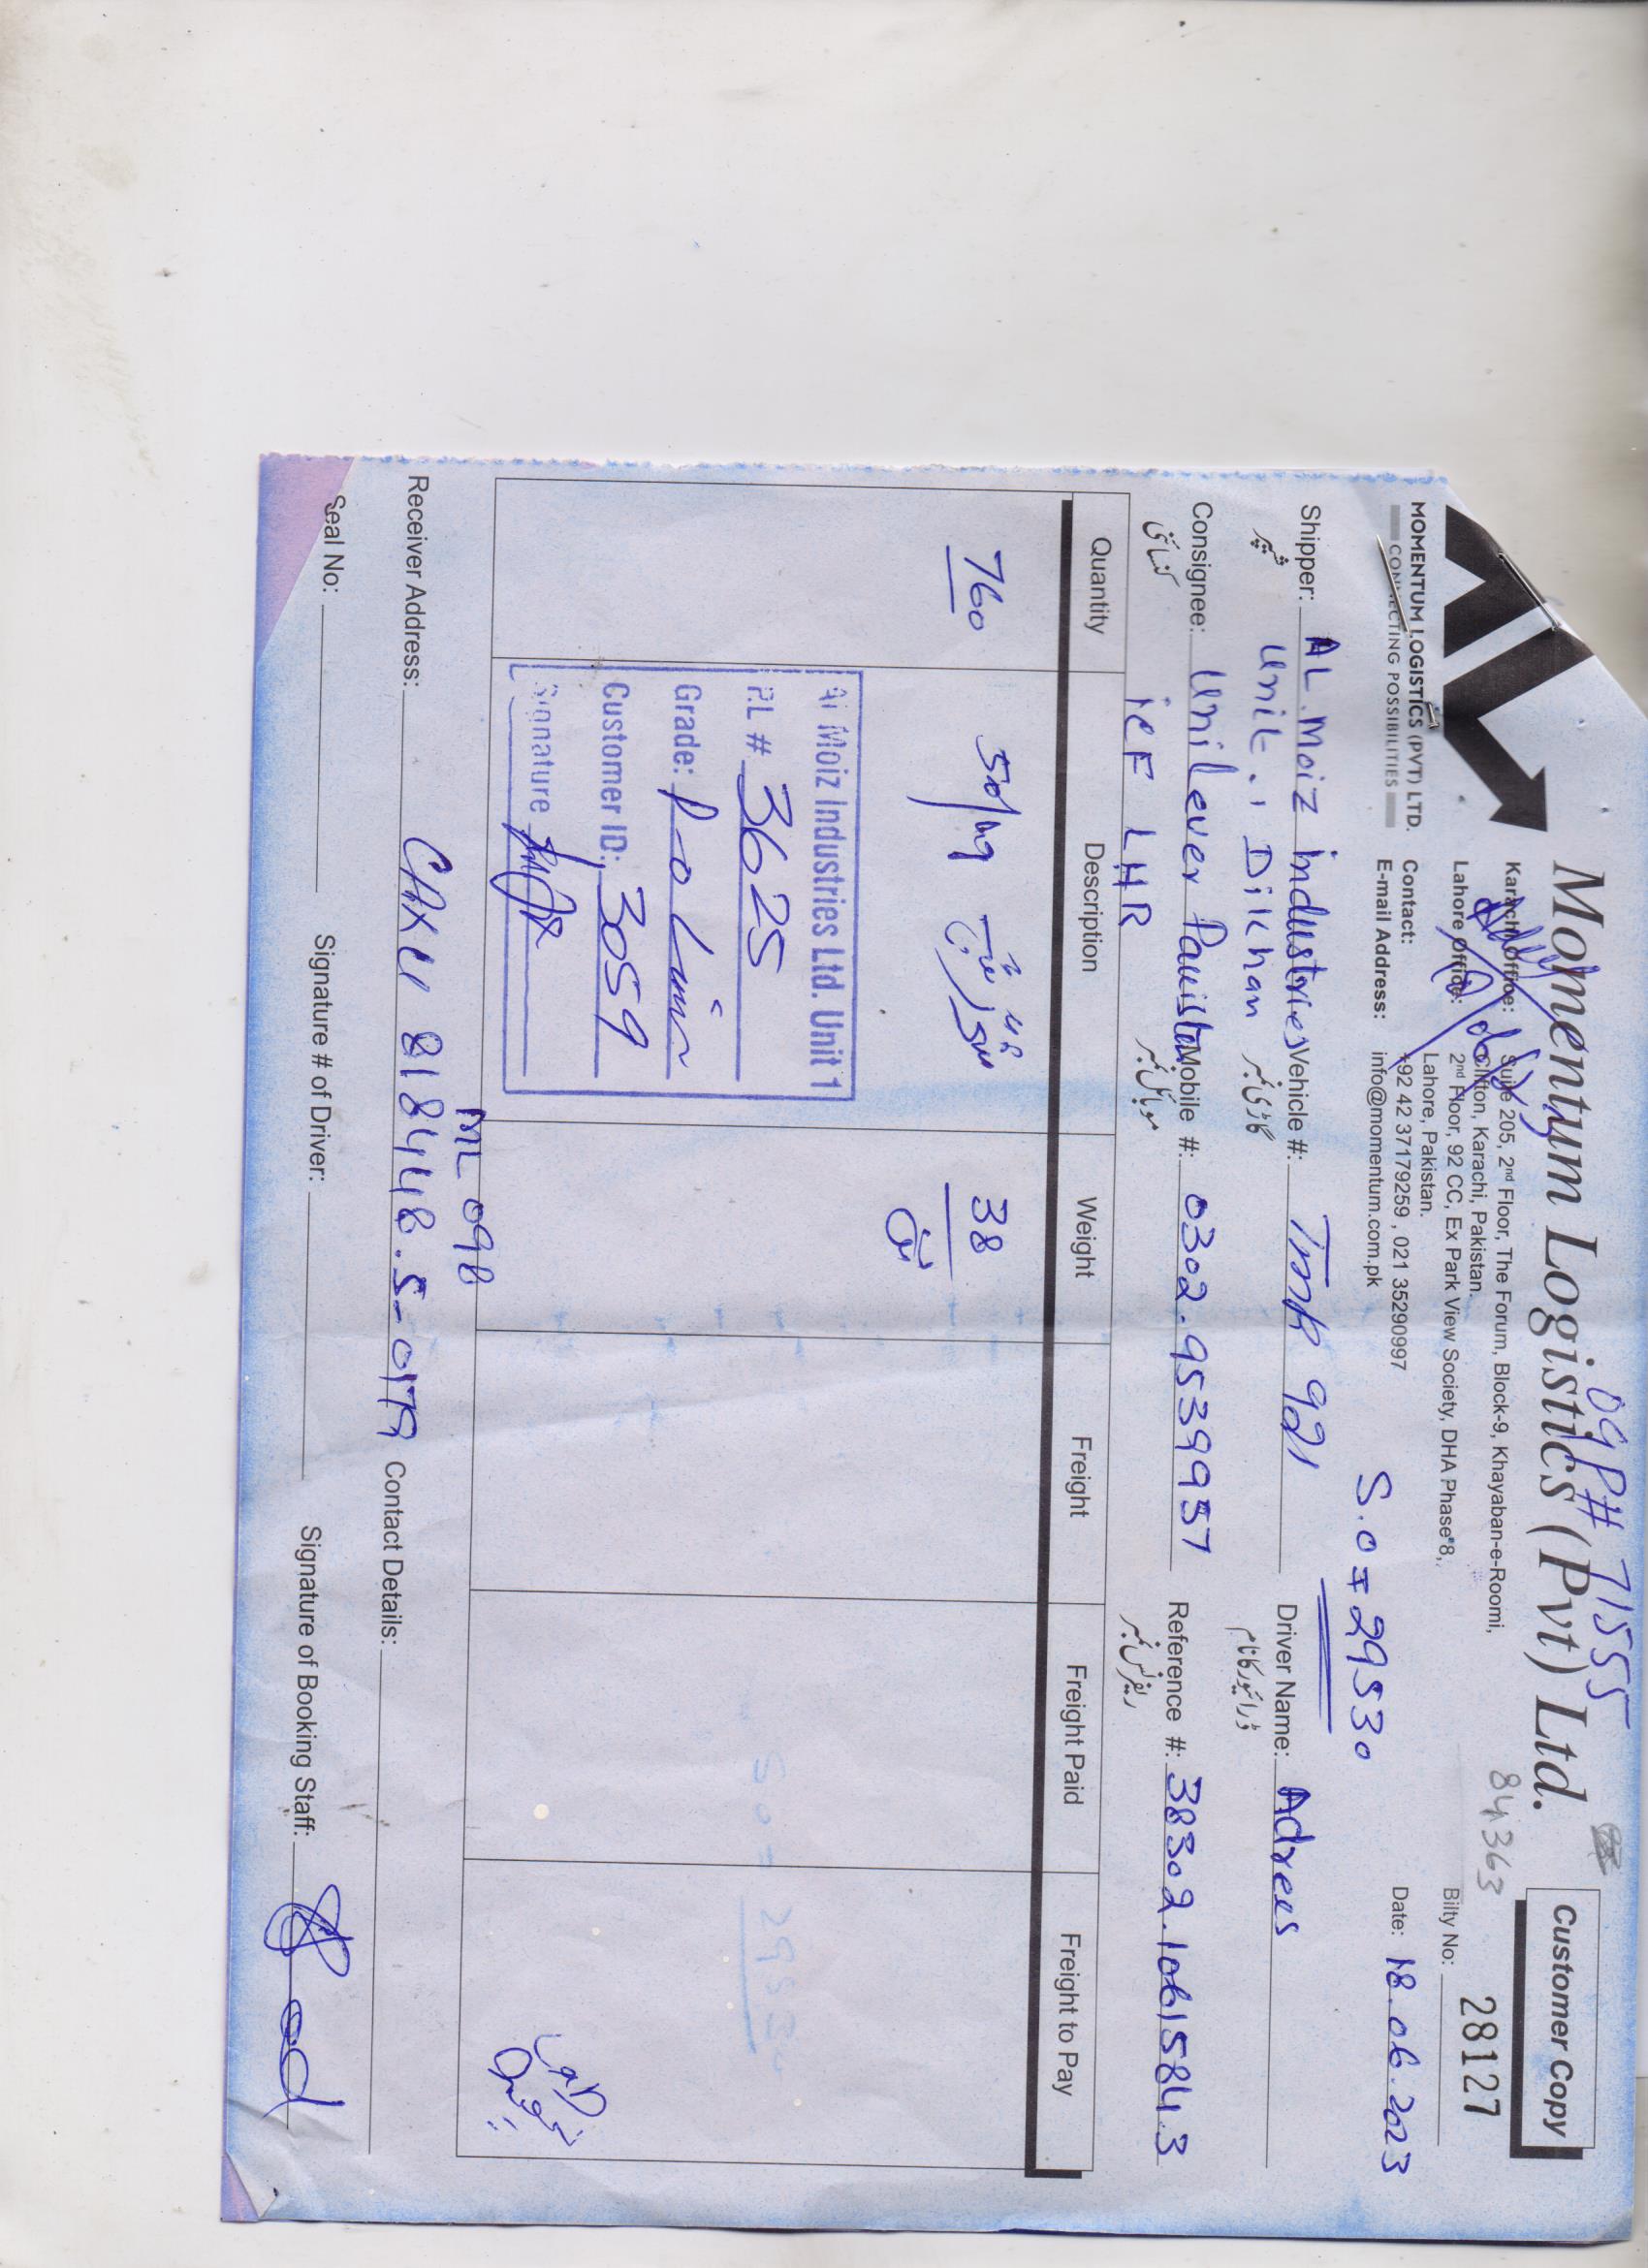 OGP# 7155
Momentum Logistics (Pvt) Ltd.
Customer Copy
84363
MOMENTUM LOGISTICS (PVT) LTD.
CONNECTING POSSIBILITIES
Karachi Office: Suite 205, 2nd Floor, The Forum, Block-9, Khayaban-e-Roomi,
Clifton, Karachi, Pakistan.
Lahore Office: 2nd Floor, 92 CC, Ex Park View Society, DHA Phase 8,
Lahore, Pakistan.
Contact: +92 42 37179259 , 021 35290997
E-mail Address: info@momentum.com.pk
Bilty No: 28127
Date: 18.06.2023
S.O # 29530
Shipper: AL.Moiz industries Vehicle #: TMR 921 Driver Name: Adrees
شپر گاڑی نمبر ڈرائیور کا نام
Unit.1 Dikhan
Consignee: Unilever Pakistan Mobile #: 0302.9539937 Reference #: 38302.10615843
کنسائنی موبائل نمبر ریفرنس نمبر
ICF LHR
Quantity Description Weight Freight Freight Paid Freight to Pay
760 50/kg 38
ٹن
Al Moiz Industries Ltd. Unit 1
P.L # 3625
Grade:
Customer ID: 3059
Signature
S.O # 29530
ML 098
Receiver Address: CAXU 818448.5-0179 Contact Details:
Seal No: Signature # of Driver: Signature of Booking Staff: